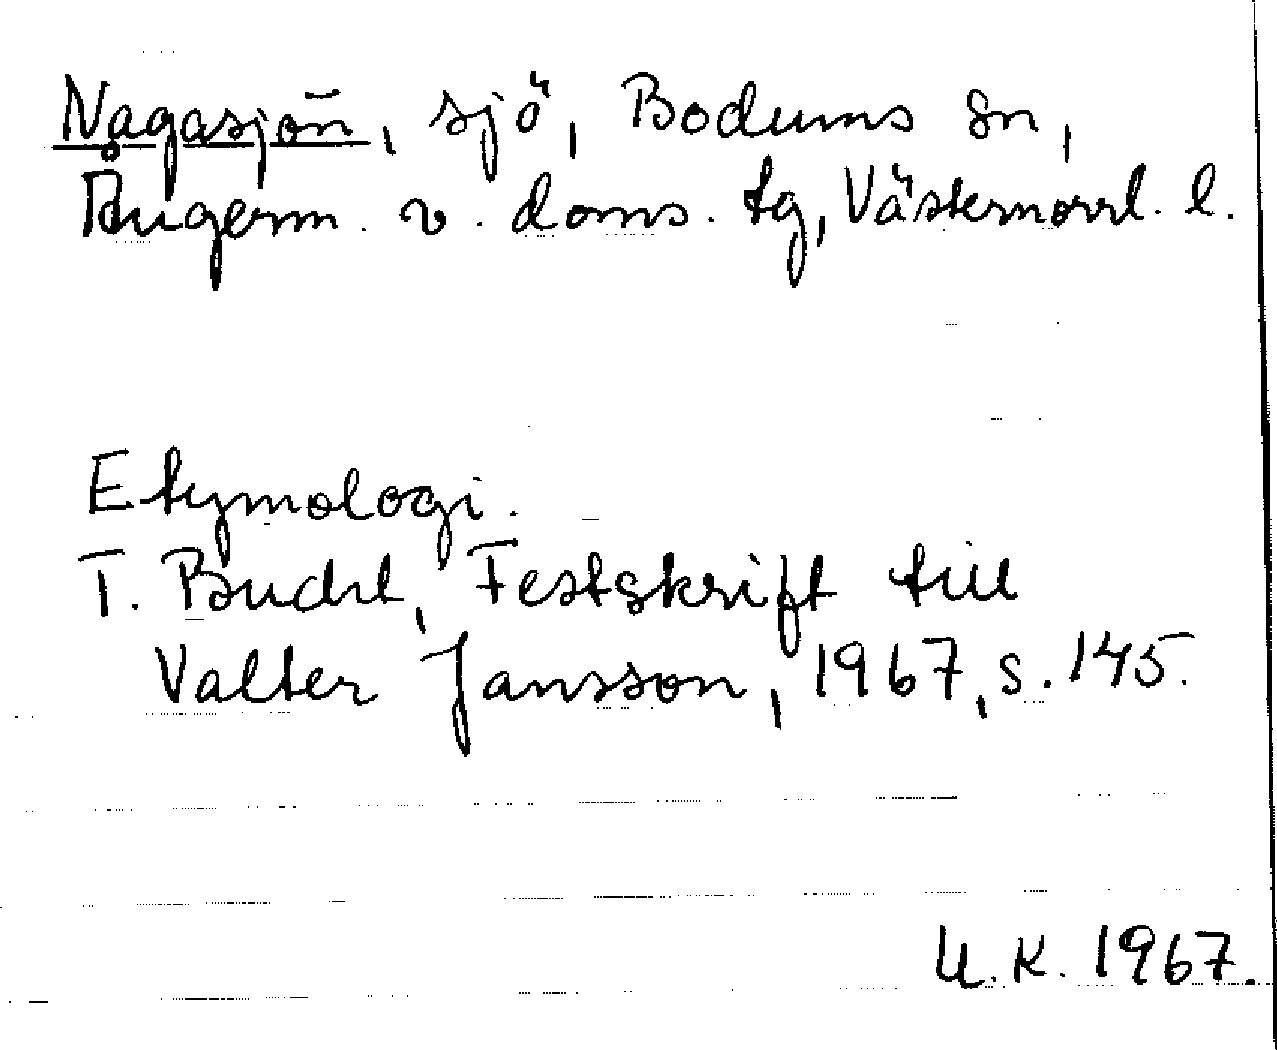 Nagasjön, sjö, Bodums sn,
Ångerm. v. doms. tg, Västernorrl. l.
Etymologi.
T. Bucht, Festskrift till
Valter Jansson, 1967, s. 145.
U.K. 1967.